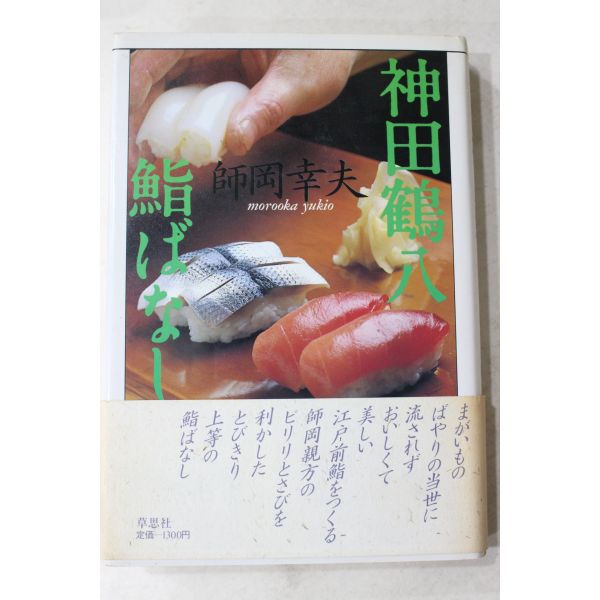 神田鶴八
鮨ばなし
師岡幸夫
morooka yukio
まがいもの
ばやりの当世に
流されず
おいしくて
美しい
江戸前鮨をつくる
師岡親方の
ピリリとさびを
利かした
とびきり
上等の
鮨ばなし
草思社
定価―1300円